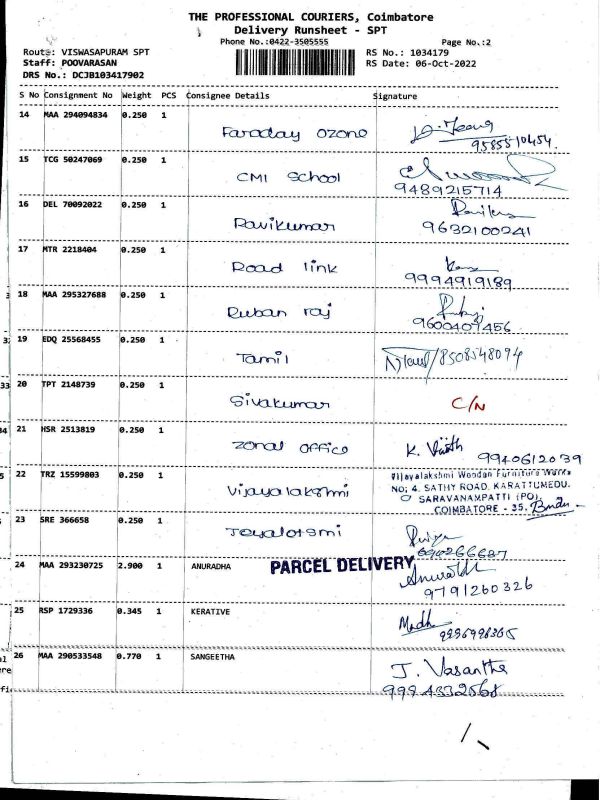 THE PROFESSIONAL COURIERS, Coimbatore
Delivery Runsheet - SPT
Phone No.:0422-3505555 Page No.:2
Route: VISWASAPURAM SPT RS No.: 1034179
Staff: POOVARASAN RS Date: 06-Oct-2022
DRS No.: DCJB103417902
S No Consignment No Weight PCS Consignee Details Signature
14 MAA 294094834 0.250 1 Faraday ozone
9585510454
15 TCG 50247069 0.250 1 CMI School
9489215714
16 DEL 70092022 0.250 1 Ravikumar
9632100241
17 MTR 2218404 0.250 1 Road link
9994919189
18 MAA 295327688 0.250 1 Ruban raj
9600409456
19 EDQ 25568455 0.250 1 Tamil /8508548094
20 TPT 2148739 0.250 1 Sivakumar C/N
21 HSR 2513819 0.250 1 zonal office K.
9940612039
22 TRZ 15599803 0.250 1 Vijayalakshmi Vijayalakshmi Wooden Furniture Works
NO; 4. SATHY ROAD, KARATTUMEDU.
SARAVANAMPATTI (PO),
COIMBATORE - 35.
23 SRE 366658 0.250 1
24 MAA 293230725 2.900 1 ANURADHA PARCEL DELIVERY
9791260326
25 RSP 1729336 0.345 1 KERATIVE
26 MAA 290533548 0.770 1 SANGEETHA J. Vasantha